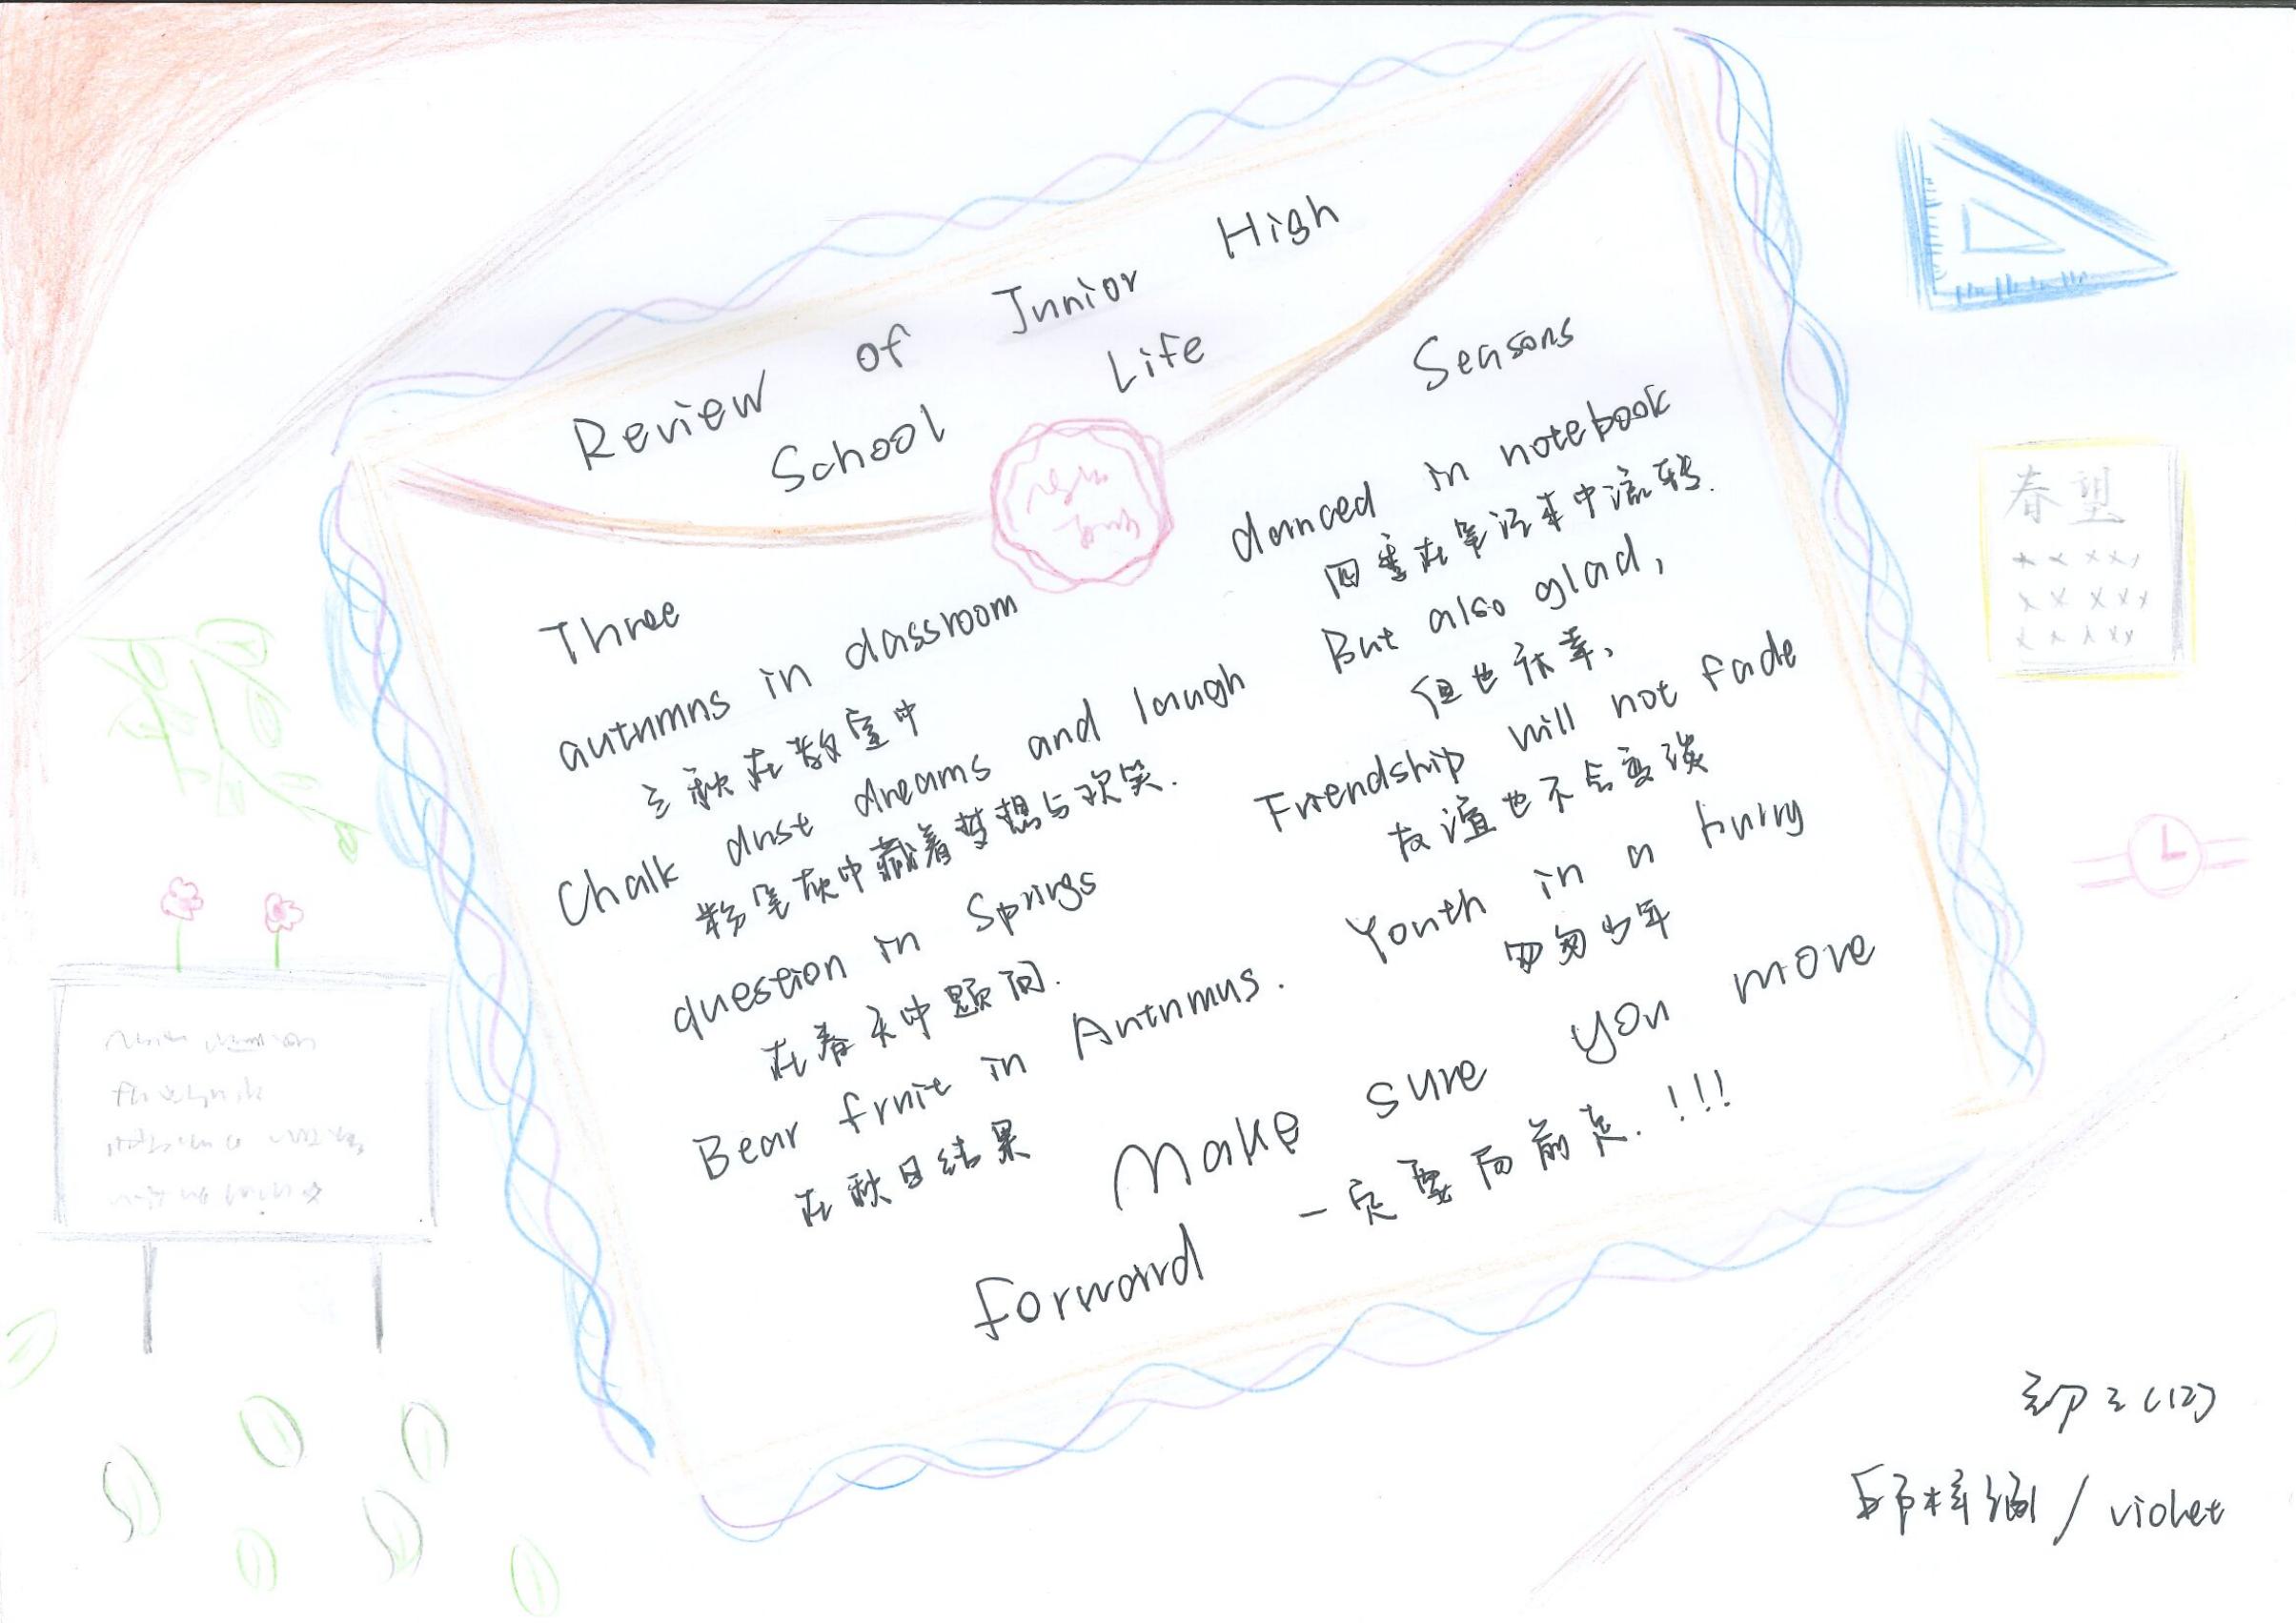 Review of Junior High
School Life
Three
autumns in classroom
三秋在教室中
Chalk dust dreams and laugh
粉笔灰中藏着梦想与欢笑.
question in Springs
在春天中题问.
Bear fruit in Autnmus.
在秋日结果
Seasons
danced in notebook
四季在笔记本中流转.
But also glad,
但也庆幸,
Friendship will not fade
友谊也不会变淡
Youth in a hurry
匆匆少年
Make sure you move
forward 一定要向前走.!!!
春望
××××,
×××××
×××××
初三(12)
邱梓涵/violet